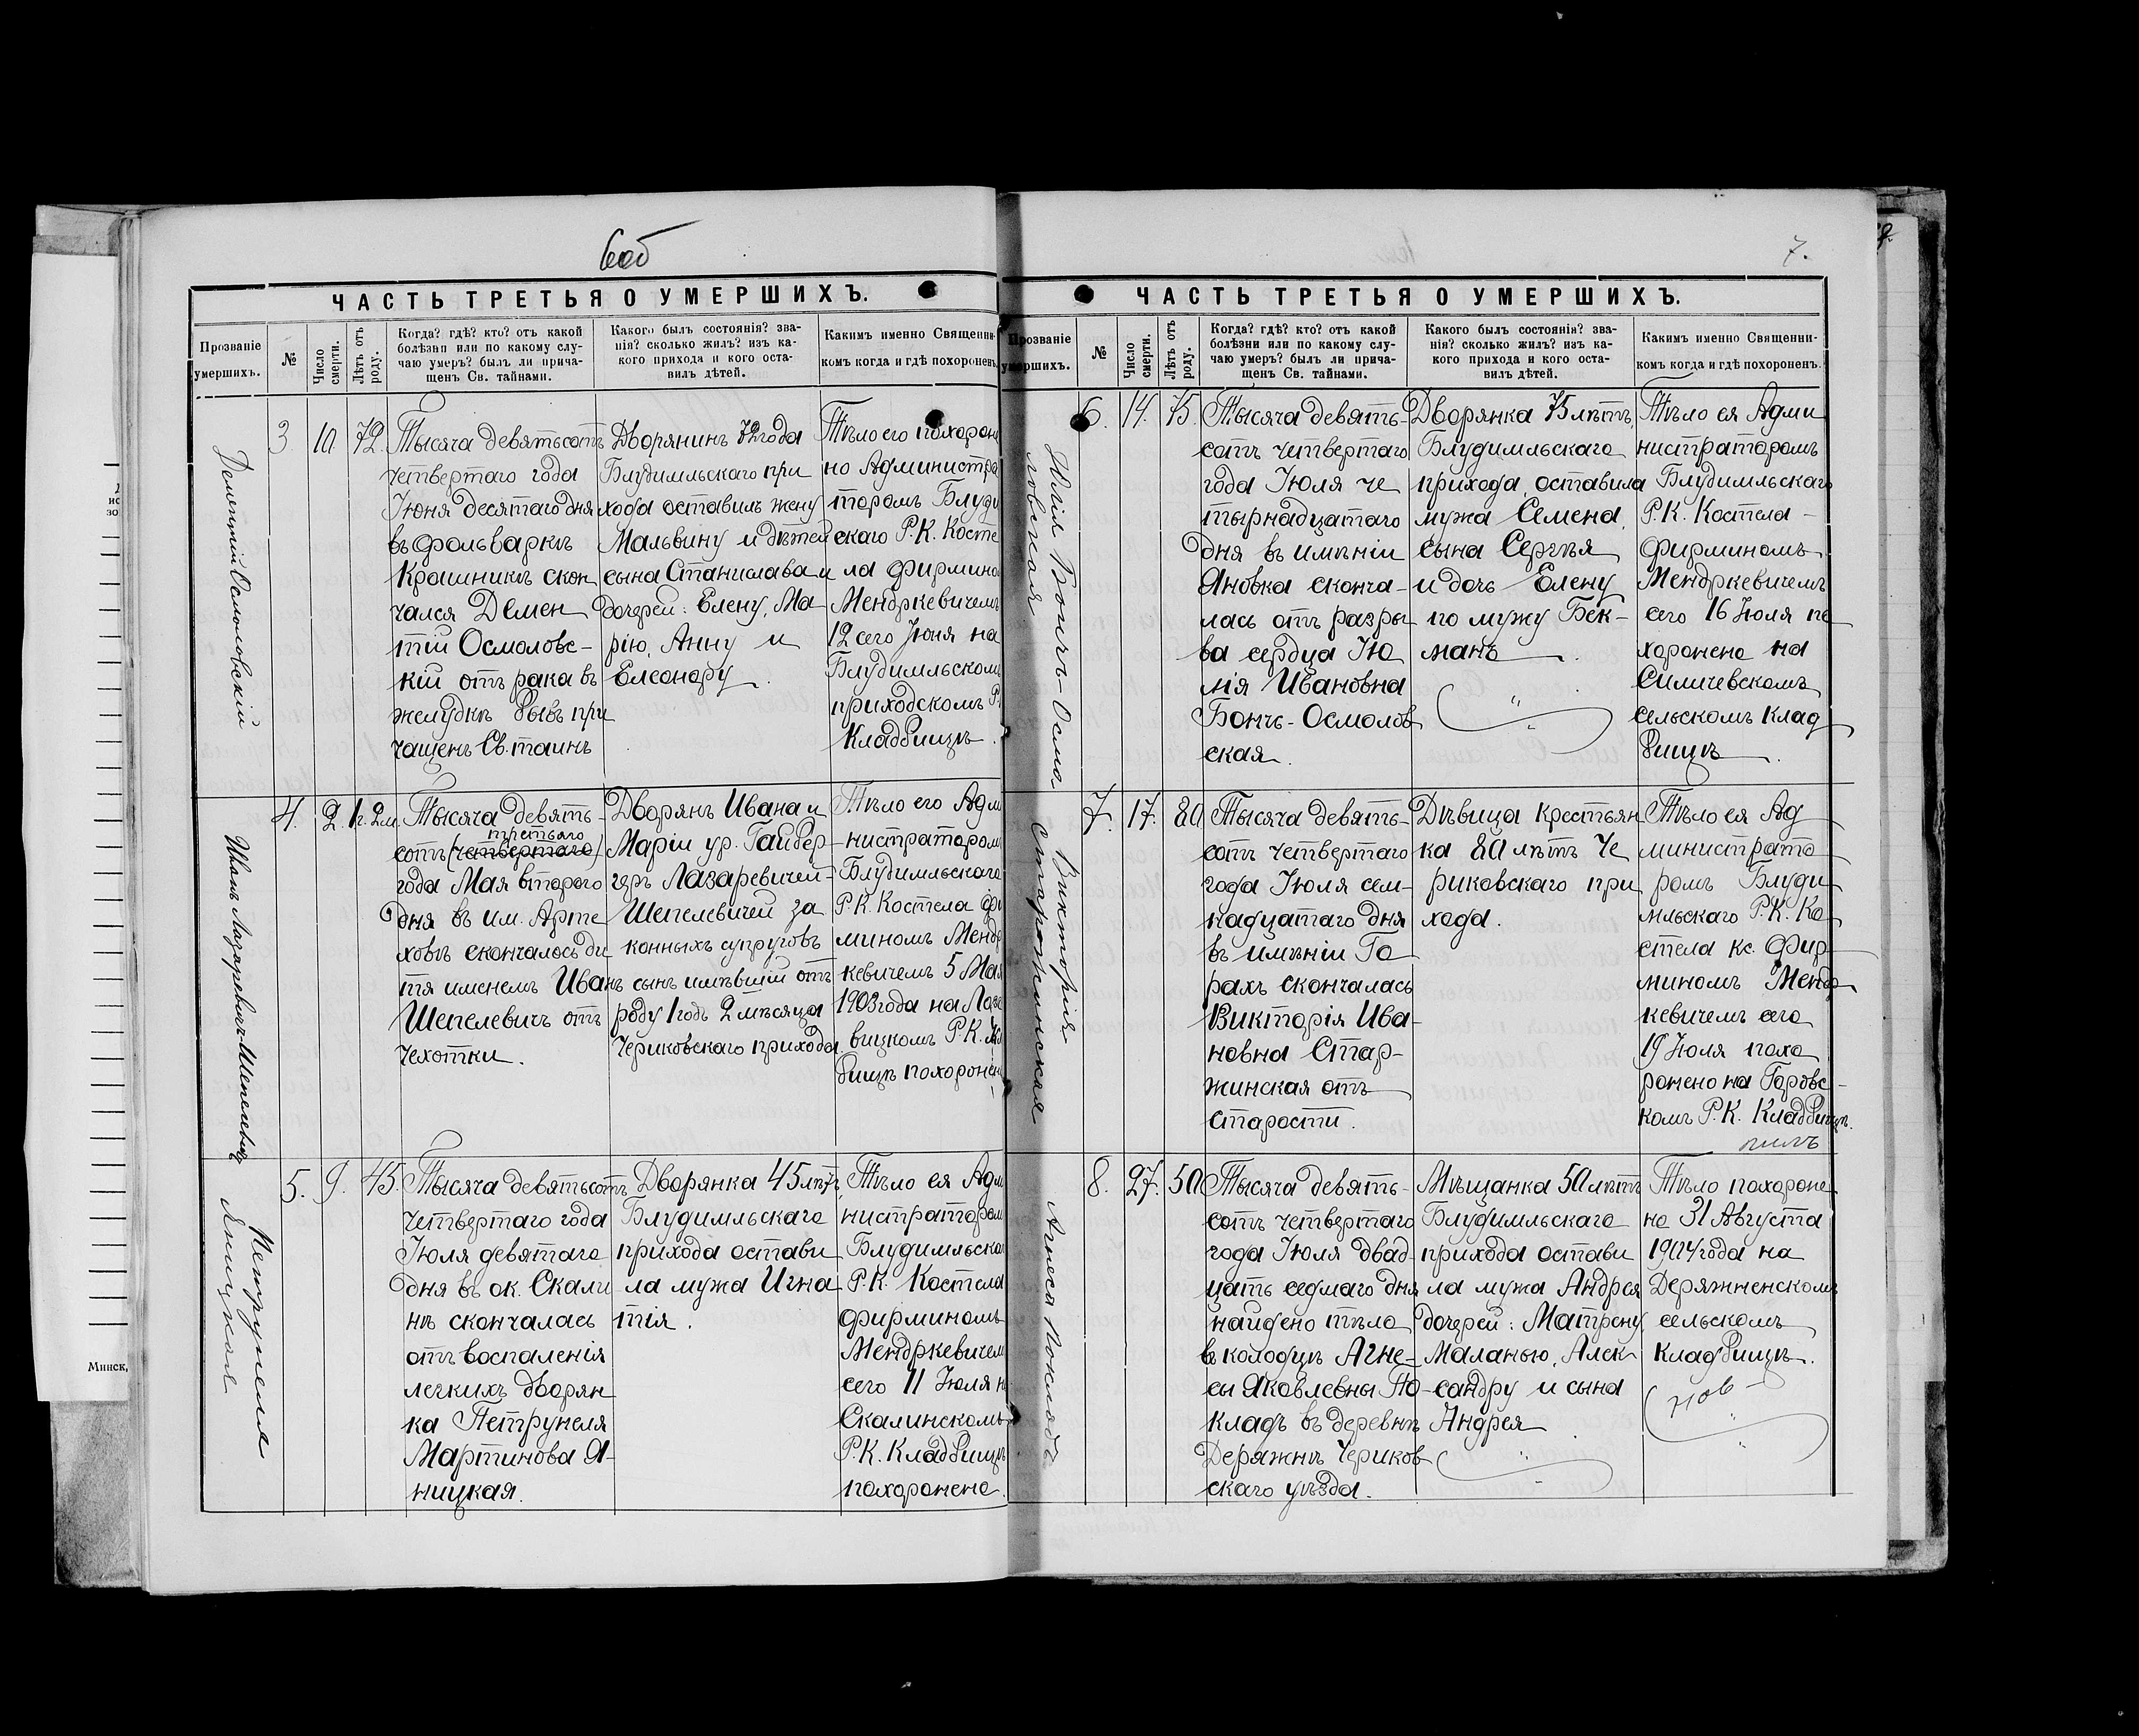 6об
ЧАСТЬ ТРЕТЬЯ О УМЕРШИХЪ.
Прозваніе
умершихъ.
№
Число
смерти.
Лѣтъ отъ
роду.
Когда? гдѣ? кто? отъ какой
болѣзни или по какому слу-
чаю умеръ? былъ ли прича-
щенъ Св. тайнами.
Какого былъ состоянія? зва-
нія? сколько жилъ? изъ ка-
кого прихода и кого оста-
вилъ дѣтей.
Какимъ именно Священни-
комъ когда и гдѣ похороненъ.
Дементій Осмоловскій
3
10
72.
Тысяча девятьсотъ
четвертаго года
Іюня десятаго дня
въ фольваркѣ
Крашникѣ скон
чался Демен
тій Осмоловс-
кій отъ рака въ
желудкѣ бывъ при
чащенъ Св. таинъ
Дворянинъ 72 года
Блудимльскаго при
хода оставилъ жену
Мальвину и дѣтей
сына Станислава и
дочерей: Елену, Ма-
рію, Анну и
Елеонору.
Тѣло его похороне
но Администра
торомъ Блуди
скаго Р. К. Косте
ла Фирмино
Мендркевичемъ
12 сего Іюня на
Блудимльскомъ
приходскомъ Р.
Кладбищѣ.
Иванъ Лазаревичъ-Шепелевичъ
4.
2.
1 г. 2 м.
Тысяча девять-
третьяго
сотъ (четвертаго)
года Мая второго
дня въ им. Арте
ховѣ скончалось ди
тя именемъ Иванъ
Шепелевичъ отъ
чехотки.
Дворянъ Ивана и
Маріи ур. Гайдер-
геръ Лазаревичей-
Шепелевичей за
конныхъ супруговъ
сынъ имѣвшій отъ
роду 1 годъ 2 мѣсяца
Чериковскаго прихода.
Тѣло его Адми
нистраторомъ
Блудимльскаго
Р. К. Костела Фи
миномъ Мендр
кевичемъ 5 Мая
1903 года на Лаза
вицкомъ Р. К. Кла
бищѣ похоронен
Петрунеля
Яницкая
5.
9.
45.
Тысяча девятьсотъ
четвертаго года
Іюля девятаго
дня въ ок. Скали
нѣ скончалась
отъ воспаленія
легкихъ дворян
ка Петрунеля
Мартинова Я-
ницкая.
Дворянка 45 лѣтъ,
Блудимльскаго
прихода остави
ла мужа Игна
тія.
Тѣло ея Адми
нистраторомъ
Блудимльскаго
Р. К. Костела
Фирминомъ
Мендркевичем
сего 11 Іюля н
Скалинскомъ
Р. К. Кладбищѣ
похоронено.
7.
ЧАСТЬ ТРЕТЬЯ О УМЕРШИХЪ.
Прозваніе
умершихъ.
№
Число
смерти.
Лѣтъ отъ
роду.
Когда? гдѣ? кто? отъ какой
болѣзни или по какому слу-
чаю умеръ? былъ ли прича-
щенъ Св. тайнами.
Какого былъ состоянія? зва-
нія? сколько жилъ? изъ ка-
кого прихода и кого оста-
вилъ дѣтей.
Какимъ именно Священни-
комъ когда и гдѣ похороненъ.
Юлія Бончъ-Осмо
ловская
6.
14.
75.
Тысяча девять-
сотъ четвертаго
года Іюля че
тырнадцатаго
дня въ имѣніи
Яновка сконча-
лась отъ разры
ва сердца Ю
лія Ивановна
Бончъ-Осмолов
ская.
Дворянка 75 лѣтъ,
Блудимльскаго
прихода, оставила
мужа Семена,
сына Сергѣя
и дочь Елену
по мужу Бек-
манъ.
Тѣло ея Адми
нистраторомъ
Блудимльскаго
Р. К. Костела-
Фирминомъ
Мендркевичемъ
сего 16 Іюля по
хоронено на
Силичевскомъ
сельскомъ Клад
бищѣ.
Викторія
Старжинская
7.
17.
80
Тысяча девять-
сотъ четвертаго
года Іюля сем-
надцатаго дня
въ имѣніи Го
рахъ скончалась
Викторія Ива-
новна Стар-
жинская отъ
старости.
Дѣвица крестьян
ка 80 лѣтъ Че
риковскаго при
хода.
Тѣло ея Ад
министрато
ромъ Блуди
мльскаго Р. К. Ко
стела кс. Фир-
миномъ Мендр
кевичемъ сего
19 Іюля похо
ронено на Горовс-
комъ Р. К. Кладбищѣ.
Агнеса Покладъ
8.
27.
50
Тысяча девять-
сотъ четвертаго
года Іюля двад-
цать седмаго дня
найдено тѣло
въ колодцѣ Агне-
сы Яковлевны По-
кладъ въ деревнѣ
Деряжнѣ Чериков
скаго уѣзда.
Мѣщанка 50 лѣтъ
Блудимльскаго
прихода остави
ла мужа Андрея
дочерей: Матрену,
Маланью, Алек
сандру и сына
Андрея
Тѣло похороне
но 31 Августа
1904 года на
Деряжненскомъ
сельскомъ
Кладбищѣ.
Минск,